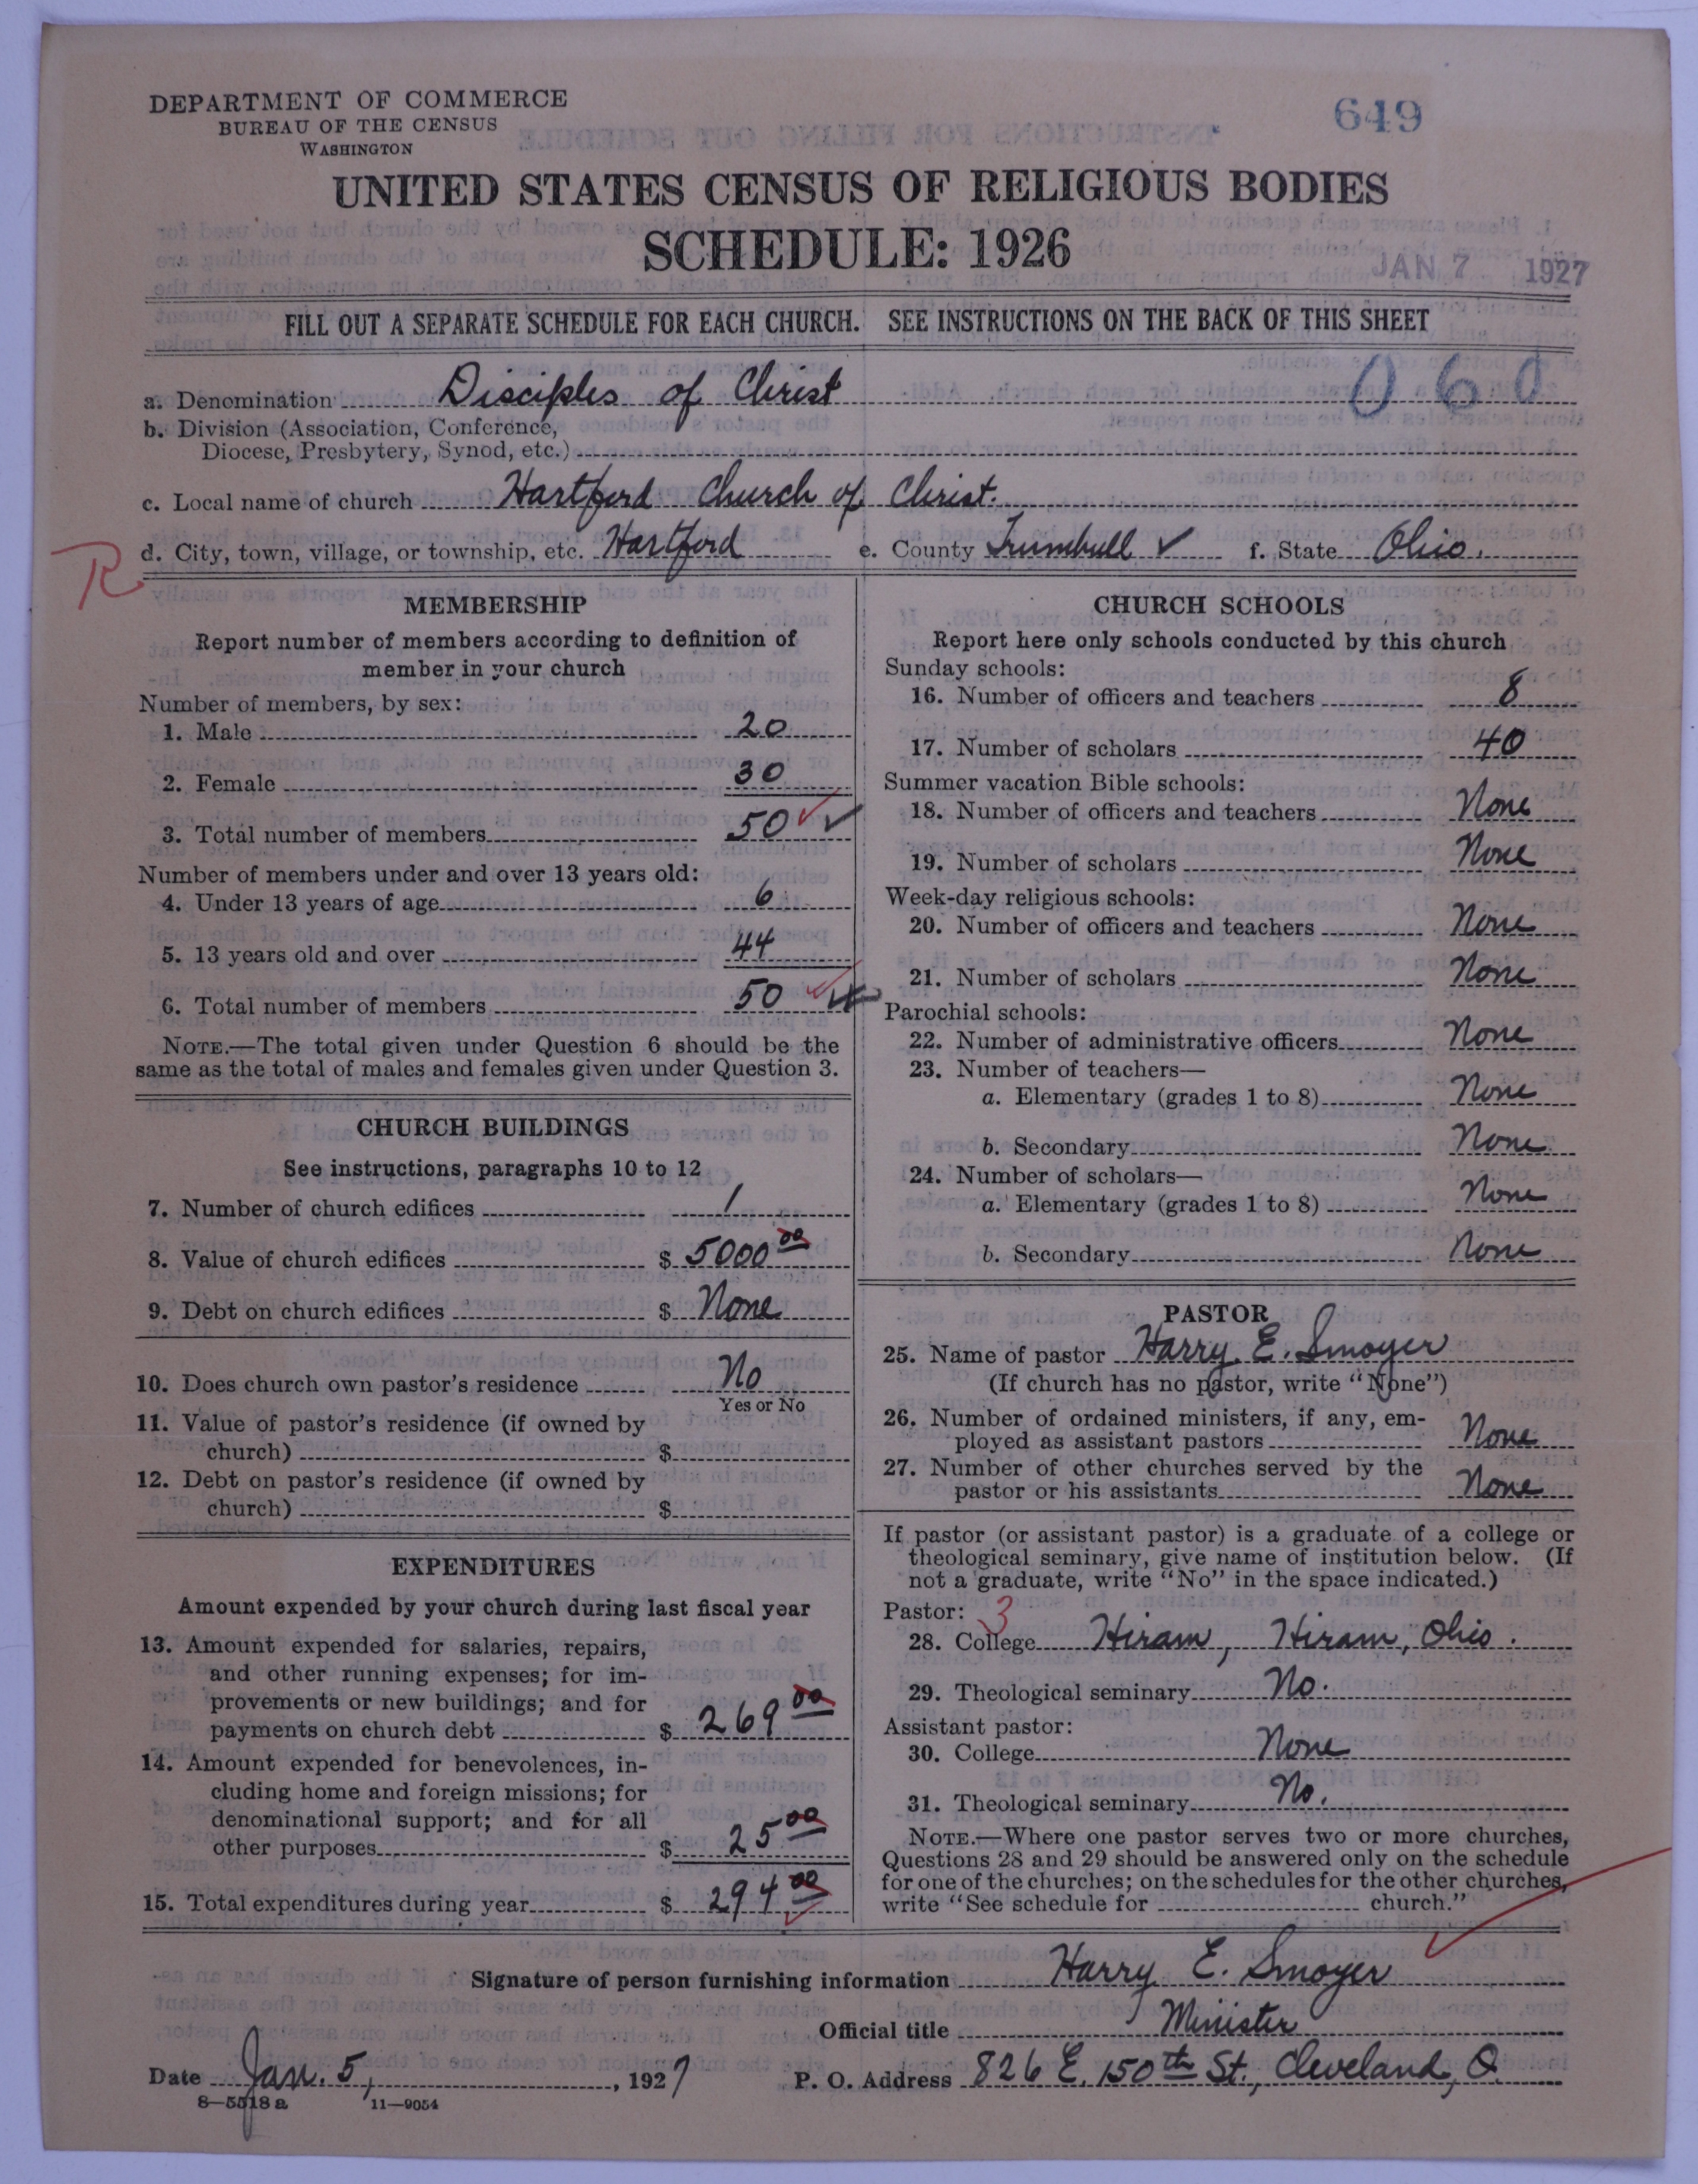 DEPARTMENT OF COMMERCE
BUREAU OF THE CENSUS
WASHINGTON
649
UNITED STATES CENSUS OF RELIGIOUS BODIES
SCHEDULE: 1926
JAN 7 1927
FILL OUT A SEPARATE SCHEDULE FOR EACH CHURCH. SEE INSTRUCTIONS ON THE BACK OF THIS SHEET
a. Denomination Disciples of Christ 060
b. Division (Association, Conference,
Diocese, Presbytery, Synod, etc.)
c. Local name of church Hartford Church of Christ.
R d. City, town, village, or township, etc. Hartford e. County Trumbull ✓ f. State Ohio.
MEMBERSHIP
Report number of members according to definition of
member in your church
Number of members, by sex:
1. Male 20
2. Female 30
3. Total number of members 50
Number of members under and over 13 years old:
4. Under 13 years of age 6
5. 13 years old and over 44
6. Total number of members 50
NOTE.—The total given under Question 6 should be the
same as the total of males and females given under Question 3.
CHURCH BUILDINGS
See instructions, paragraphs 10 to 12
7. Number of church edifices 1
8. Value of church edifices $ 5000 00
9. Debt on church edifices $ None
10. Does church own pastor's residence No
Yes or No
11. Value of pastor's residence (if owned by
church) $
12. Debt on pastor's residence (if owned by
church) $
EXPENDITURES
Amount expended by your church during last fiscal year
13. Amount expended for salaries, repairs,
and other running expenses; for im-
provements or new buildings; and for
payments on church debt $ 269 00
14. Amount expended for benevolences, in-
cluding home and foreign missions; for
denominational support; and for all
other purposes $ 25 00
15. Total expenditures during year $ 294 00
CHURCH SCHOOLS
Report here only schools conducted by this church
Sunday schools:
16. Number of officers and teachers 8
17. Number of scholars 40
Summer vacation Bible schools:
18. Number of officers and teachers None
19. Number of scholars None
Week-day religious schools:
20. Number of officers and teachers None
21. Number of scholars None
Parochial schools:
22. Number of administrative officers None
23. Number of teachers—
a. Elementary (grades 1 to 8) None
b. Secondary None
24. Number of scholars—
a. Elementary (grades 1 to 8) None
b. Secondary None
PASTOR
25. Name of pastor Harry E. Smoyer
(If church has no pastor, write "None")
26. Number of ordained ministers, if any, em-
ployed as assistant pastors None
27. Number of other churches served by the
pastor or his assistants None
If pastor (or assistant pastor) is a graduate of a college or
theological seminary, give name of institution below. (If
not a graduate, write "No" in the space indicated.)
Pastor: 3
28. College Hiram, Hiram, Ohio.
29. Theological seminary No.
Assistant pastor:
30. College None
31. Theological seminary No.
NOTE.—Where one pastor serves two or more churches,
Questions 28 and 29 should be answered only on the schedule
for one of the churches; on the schedules for the other churches,
write "See schedule for church."
Signature of person furnishing information Harry E. Smoyer
Official title Minister
Date Jan. 5, 1927 P. O. Address 826 E. 150th St., Cleveland, O.
8—5518 a 11—9054